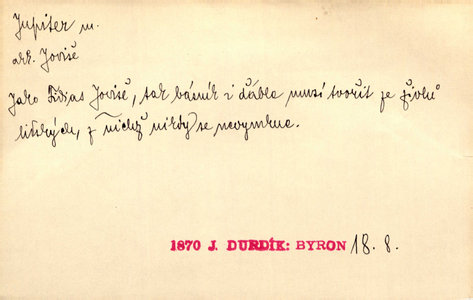 Jupiter m.
akk. Joviše
Jako Fidjas Joviše, tak básník i ďábla musí tvořit ze živlů
lidských, z nichž nikdy se nevymkne.
1870 J. DURDÍK: BYRON 18. 8.